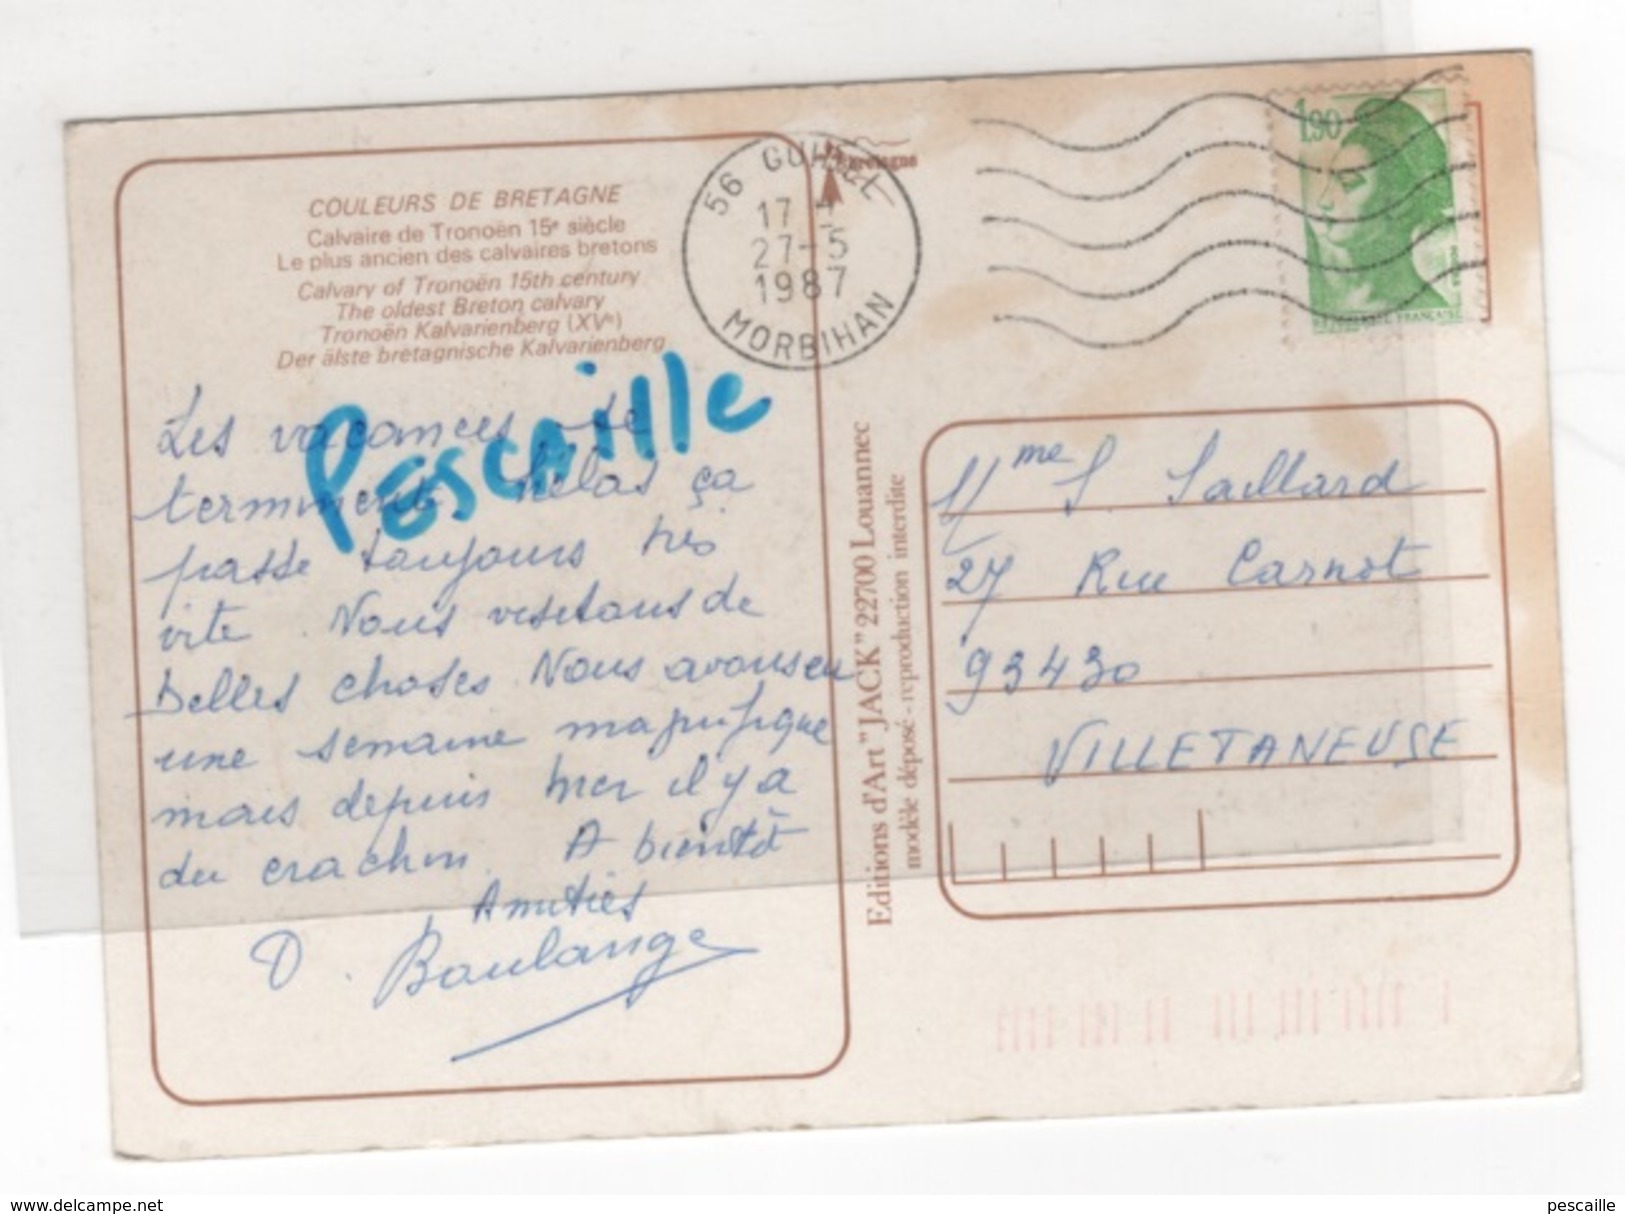 COULEURS DE BRETAGNE
Calvaire de Tronoën 15e siècle
Le plus ancien des calvaires bretons
Calvary of Tronoën 15th century
The oldest Breton calvary
Tronoën Kalvarienberg (XVe)
Der älste bretagnische Kalvarienberg
Les vacances se
terminent, hélas ça
passe toujours très
vite. Nous visitons de
belles choses Nous avons eu
une semaine magnifique
mais depuis hier il y a
du crachin. A bientôt
Amitiés
D. Boulange
Pescaille
56 GUIDEL
17 H
27-5
1987
MORBIHAN
Bretagne
1,90
Editions d'Art "JACK" 22700 Louannec
modèle déposé - reproduction interdite
Mme S Saillard
27 Rue Carnot
93430
VILLETANEUSE
www.delcampe.net
pescaille